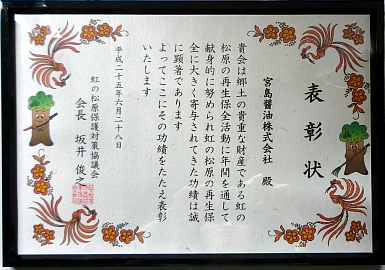 表彰状
宮島醤油株式会社 殿
貴会は郷土の貴重な財産である虹の
松原の再生保全活動に年間を通して
献身的に努められ虹の松原の再生保
全に大きく寄与されてきた功績は誠
に顕著であります
よってここにその功績をたたえ表彰
いたします
平成二十五年六月二十八日
虹の松原保護対策協議会
会長 坂井 俊之